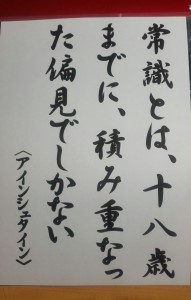 常識とは、十八歳
までに、積み重なっ
た偏見でしかない
〈アインシュタイン〉